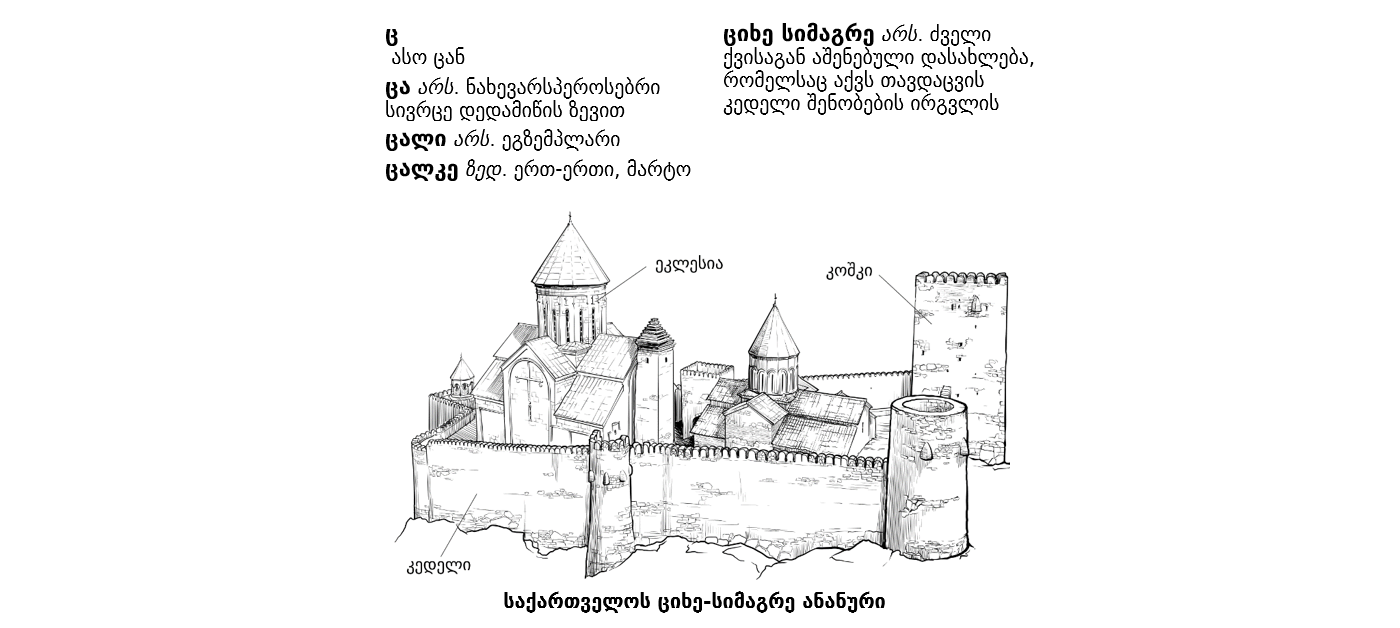 ც
ასო ცან
ცა არს. ნახევარსპეროსებრი
სივრცე დედამიწის ზევით
ცალი არს. ეგზემპლარი
ცალკე ზედ. ერთ-ერთი, მარტო
ციხე სიმაგრე არს. ძველი
ქვისაგან აშენებული დასახლება,
რომელსაც აქვს თავდაცვის
კედელი შენობების ირგვლის
ეკლესია
კოშკი
კედელი
საქართველოს ციხე-სიმაგრე ანანური